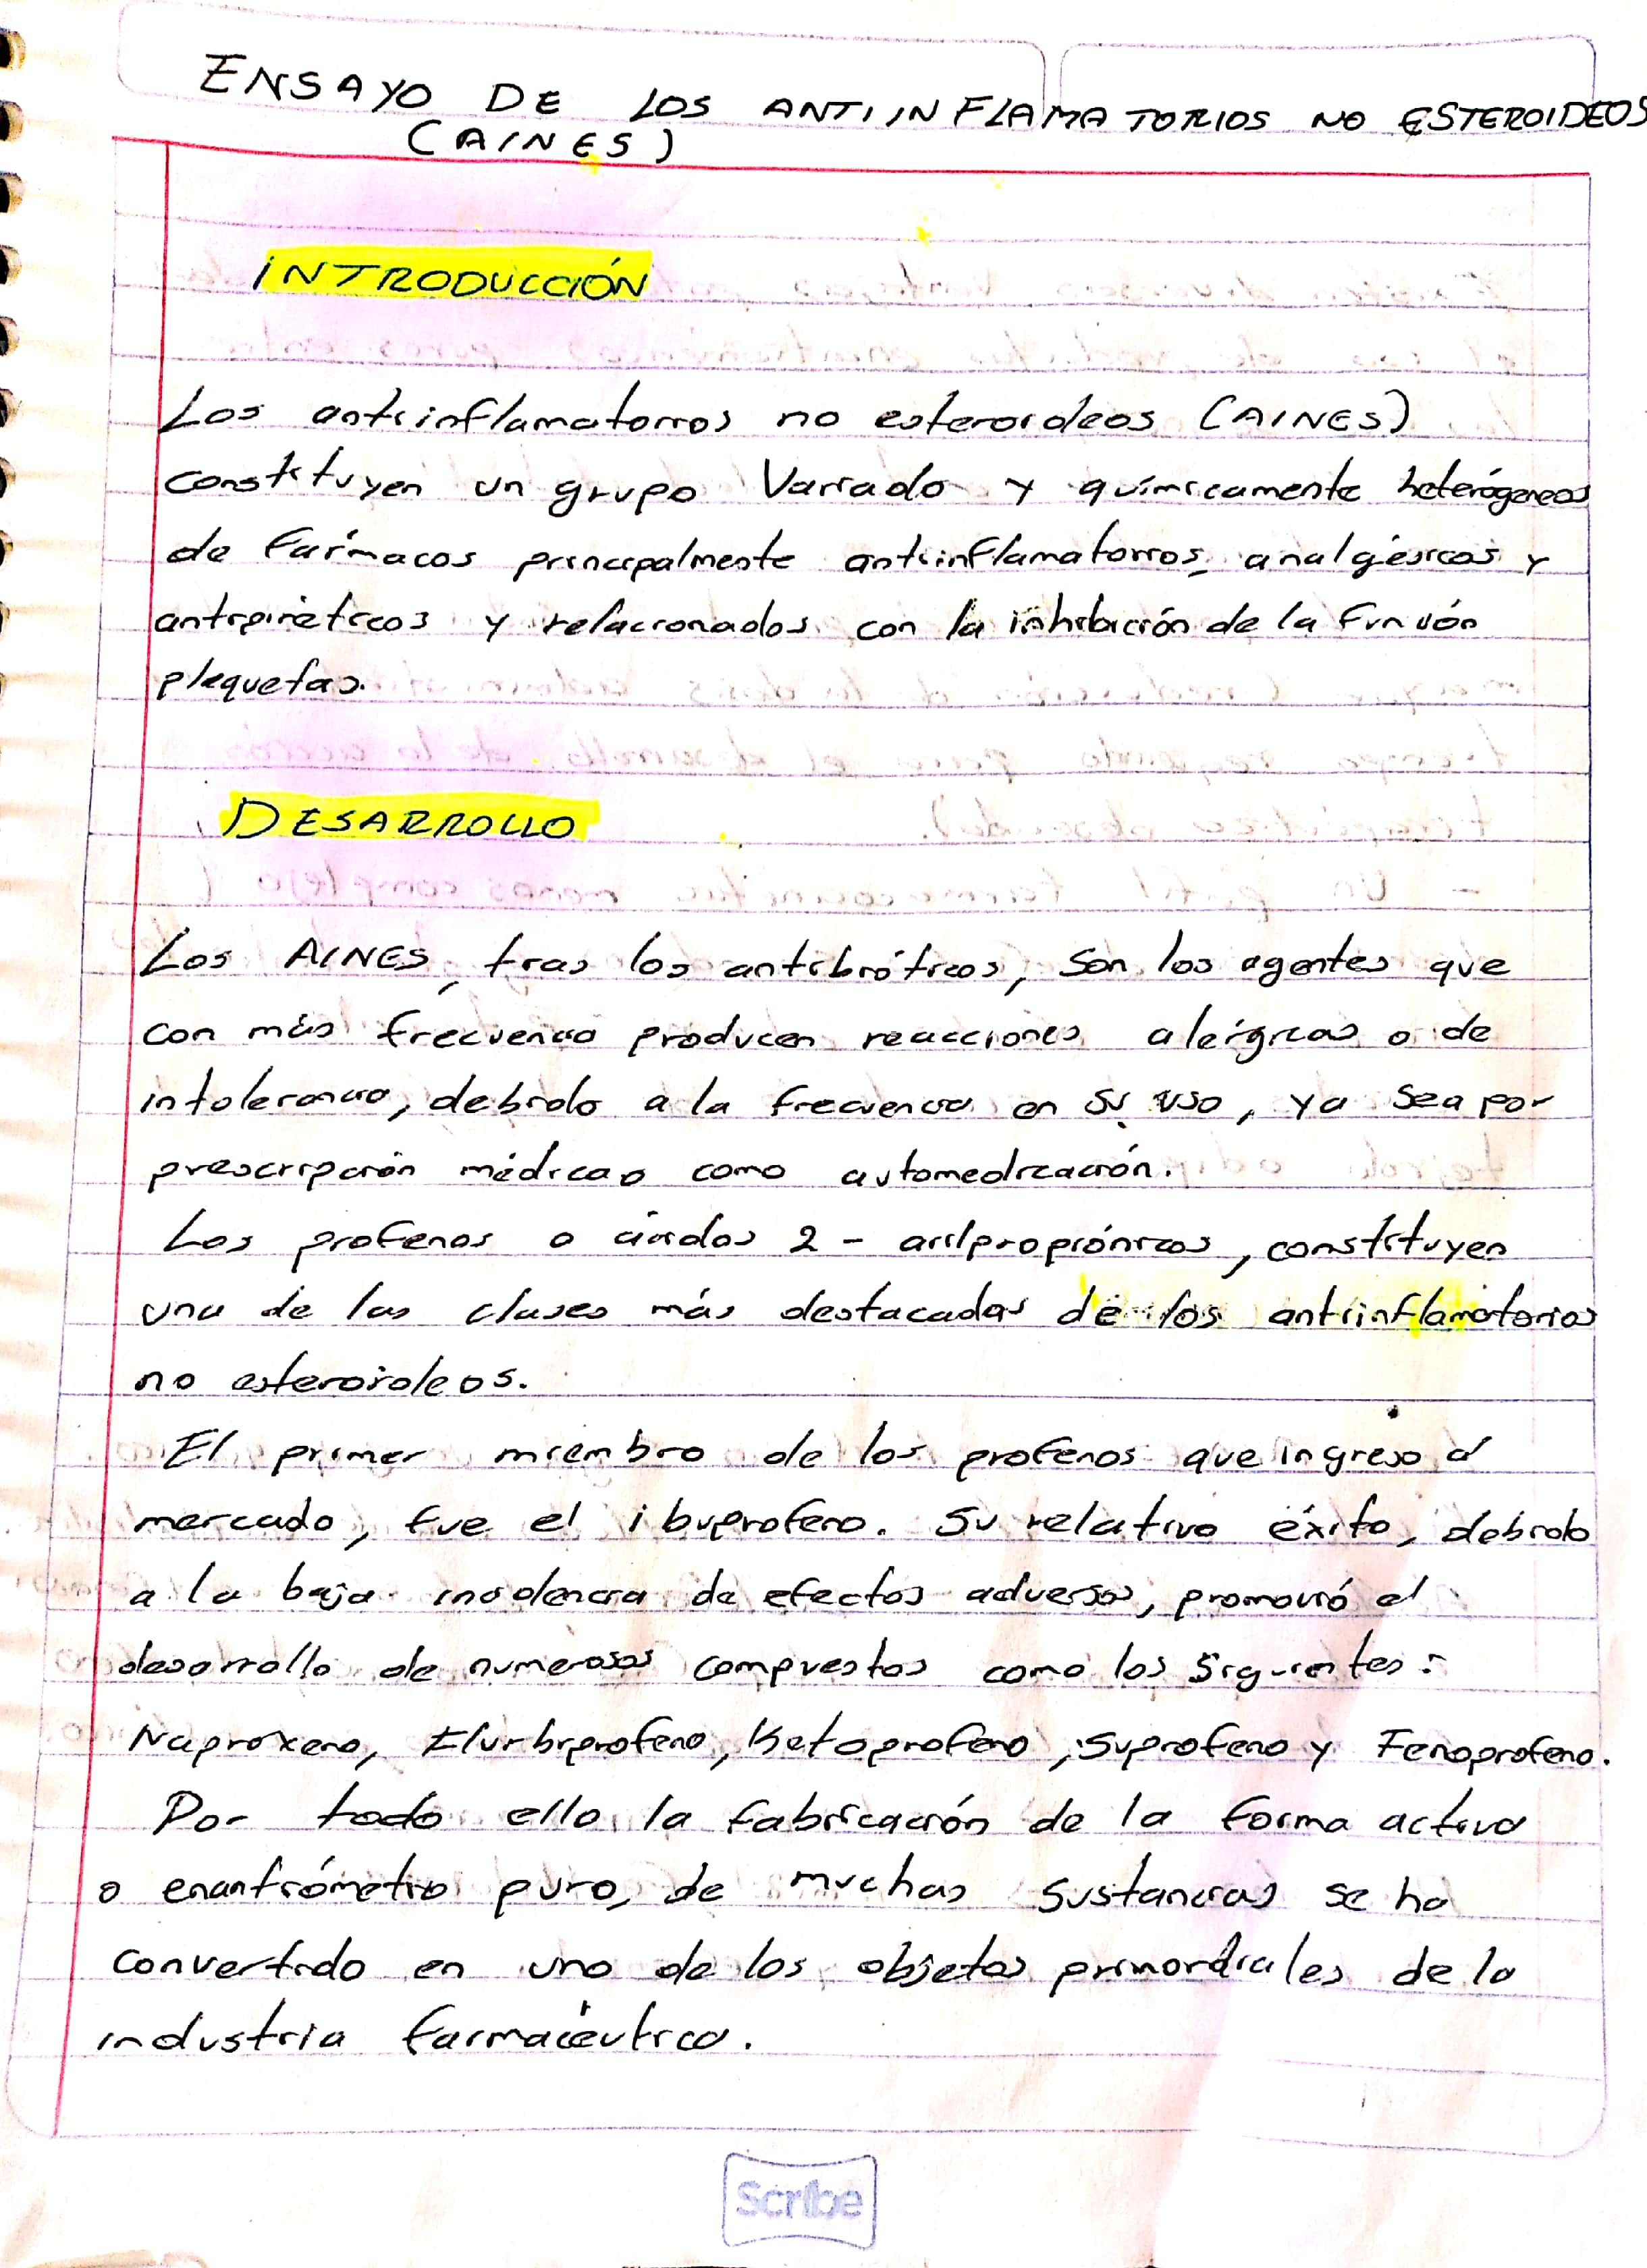 ENSAYO DE LOS ANTIINFLAMATORIOS NO ESTEROIDEOS
(AINES)
INTRODUCCIÓN
Los antiinflamatorios no esteroideos (AINES)
constituyen un grupo Variado y químicamente heterógeneos
de Fármacos principalmente antiinflamatorios, analgésicos y
antipiréticos y relacionados con la inhibición de la Función
plaquetas.
DESARROLLO
Los AINES, tras los antibióticos, son los agentes que
con más frecuencia producen reacciones alérgicas o de
intolerancia, debido a la frecuencia en su uso, ya sea por
prescripción médicas como automedicación.
Los profenos o ácidos 2 - arilpropiónicos, constituyen
una de las clases más destacadas de los antiinflamatorios
no esteroideos.
El primer miembro de los profenos que ingreso al
mercado, fue el ibuprofeno. Su relativo éxito, debido
a la baja incidencia de efectos adversos, promovió el
desarrollo de numerosos compuestos como los siguientes:
Naproxeno, Flurbiprofeno, Ketoprofeno, Suprofeno y Fenoprofeno.
Por todo ello la fabricación de la forma activa
o enantiómetro puro, de muchas sustancias se ha
convertido en uno de los objetos primordiales de la
industria farmacéutica.
Scribe